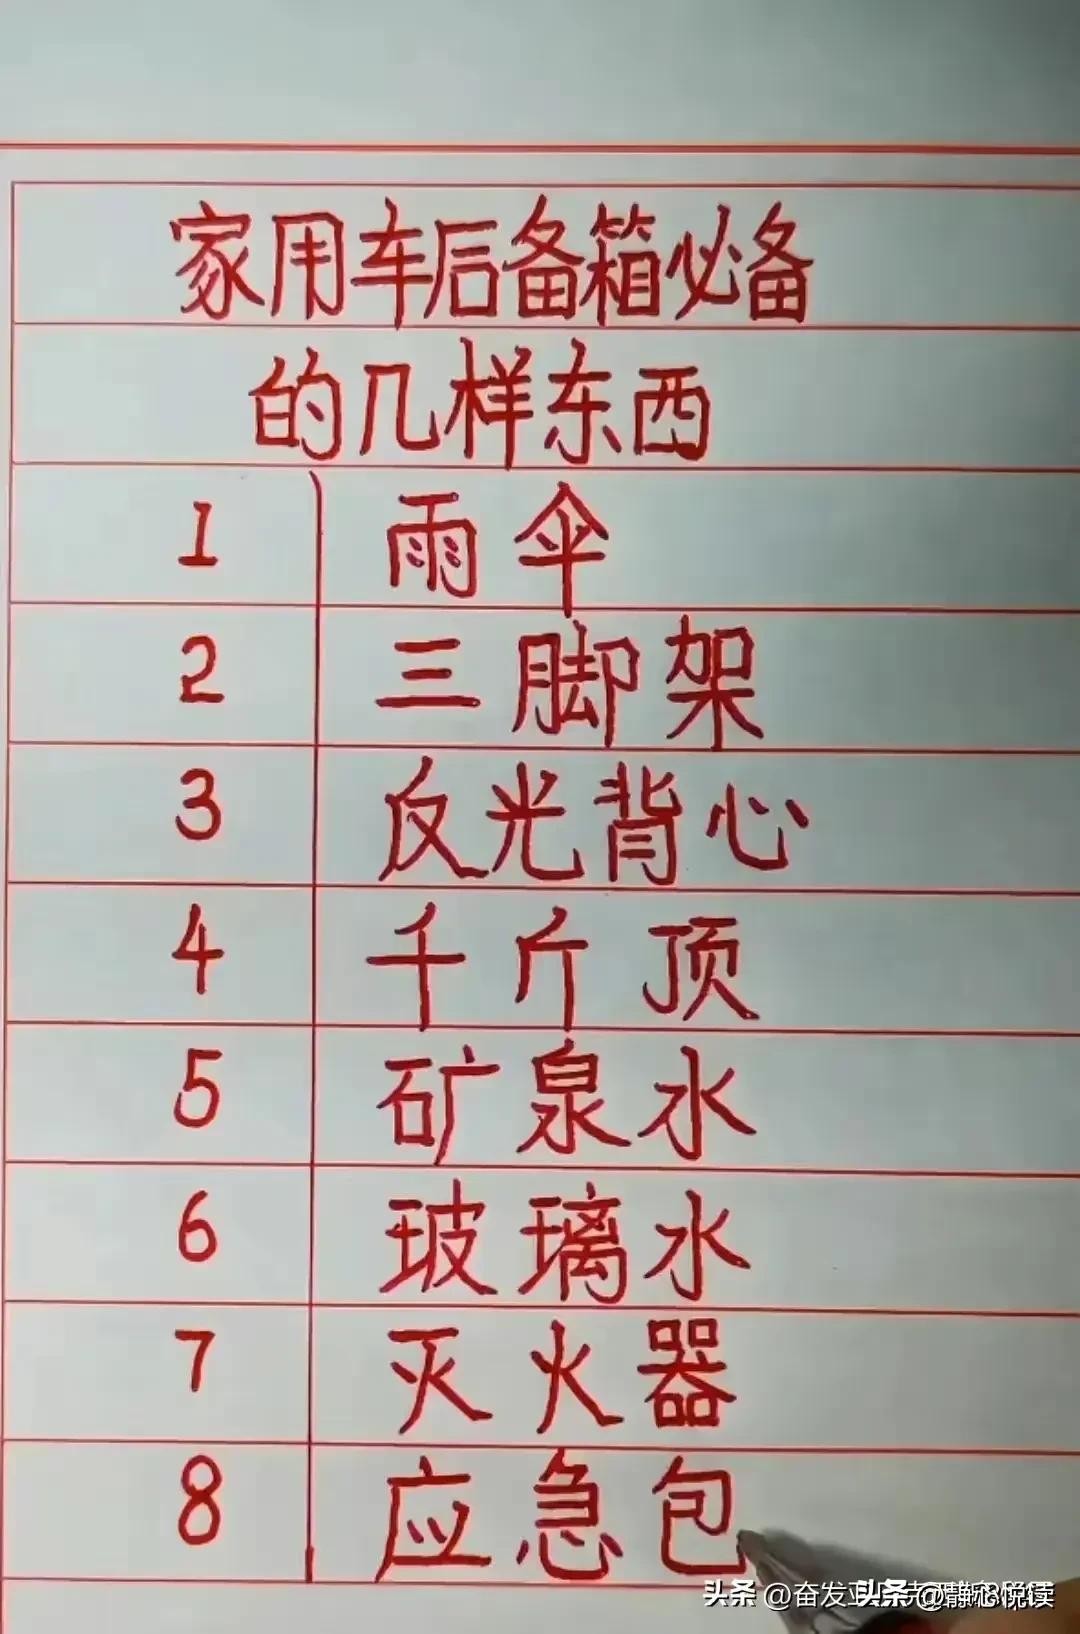 家用车后备箱必备
的几样东西
1 雨伞
2 三脚架
3 反光背心
4 千斤顶
5 矿泉水
6 玻璃水
7 灭火器
8 应急包
头条 @奋发
头条 @静心悦读